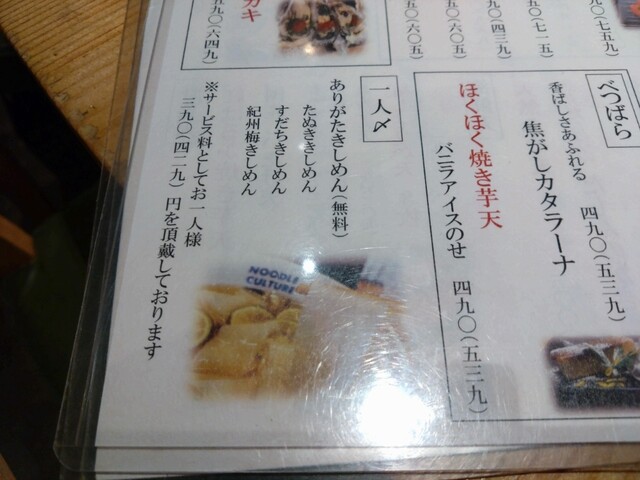 五九〇(六四九)
カキ
五〇(六〇五)
五〇(六〇五)
九〇(四三九)
五〇(七一五)
九〇(七五九)
べつばら
香ばしさあふれる
焦がしカタラーナ
四九〇(五三九)
ほくほく焼き芋天
バニラアイスのせ 四九〇(五三九)
一人〆
ありがたききしめん(無料)
たぬききしめん
すだちきしめん
紀州梅きしめん
※サービス料としてお一人様
三九〇(四二九)円を頂戴しております
NOODLE
CULTURE